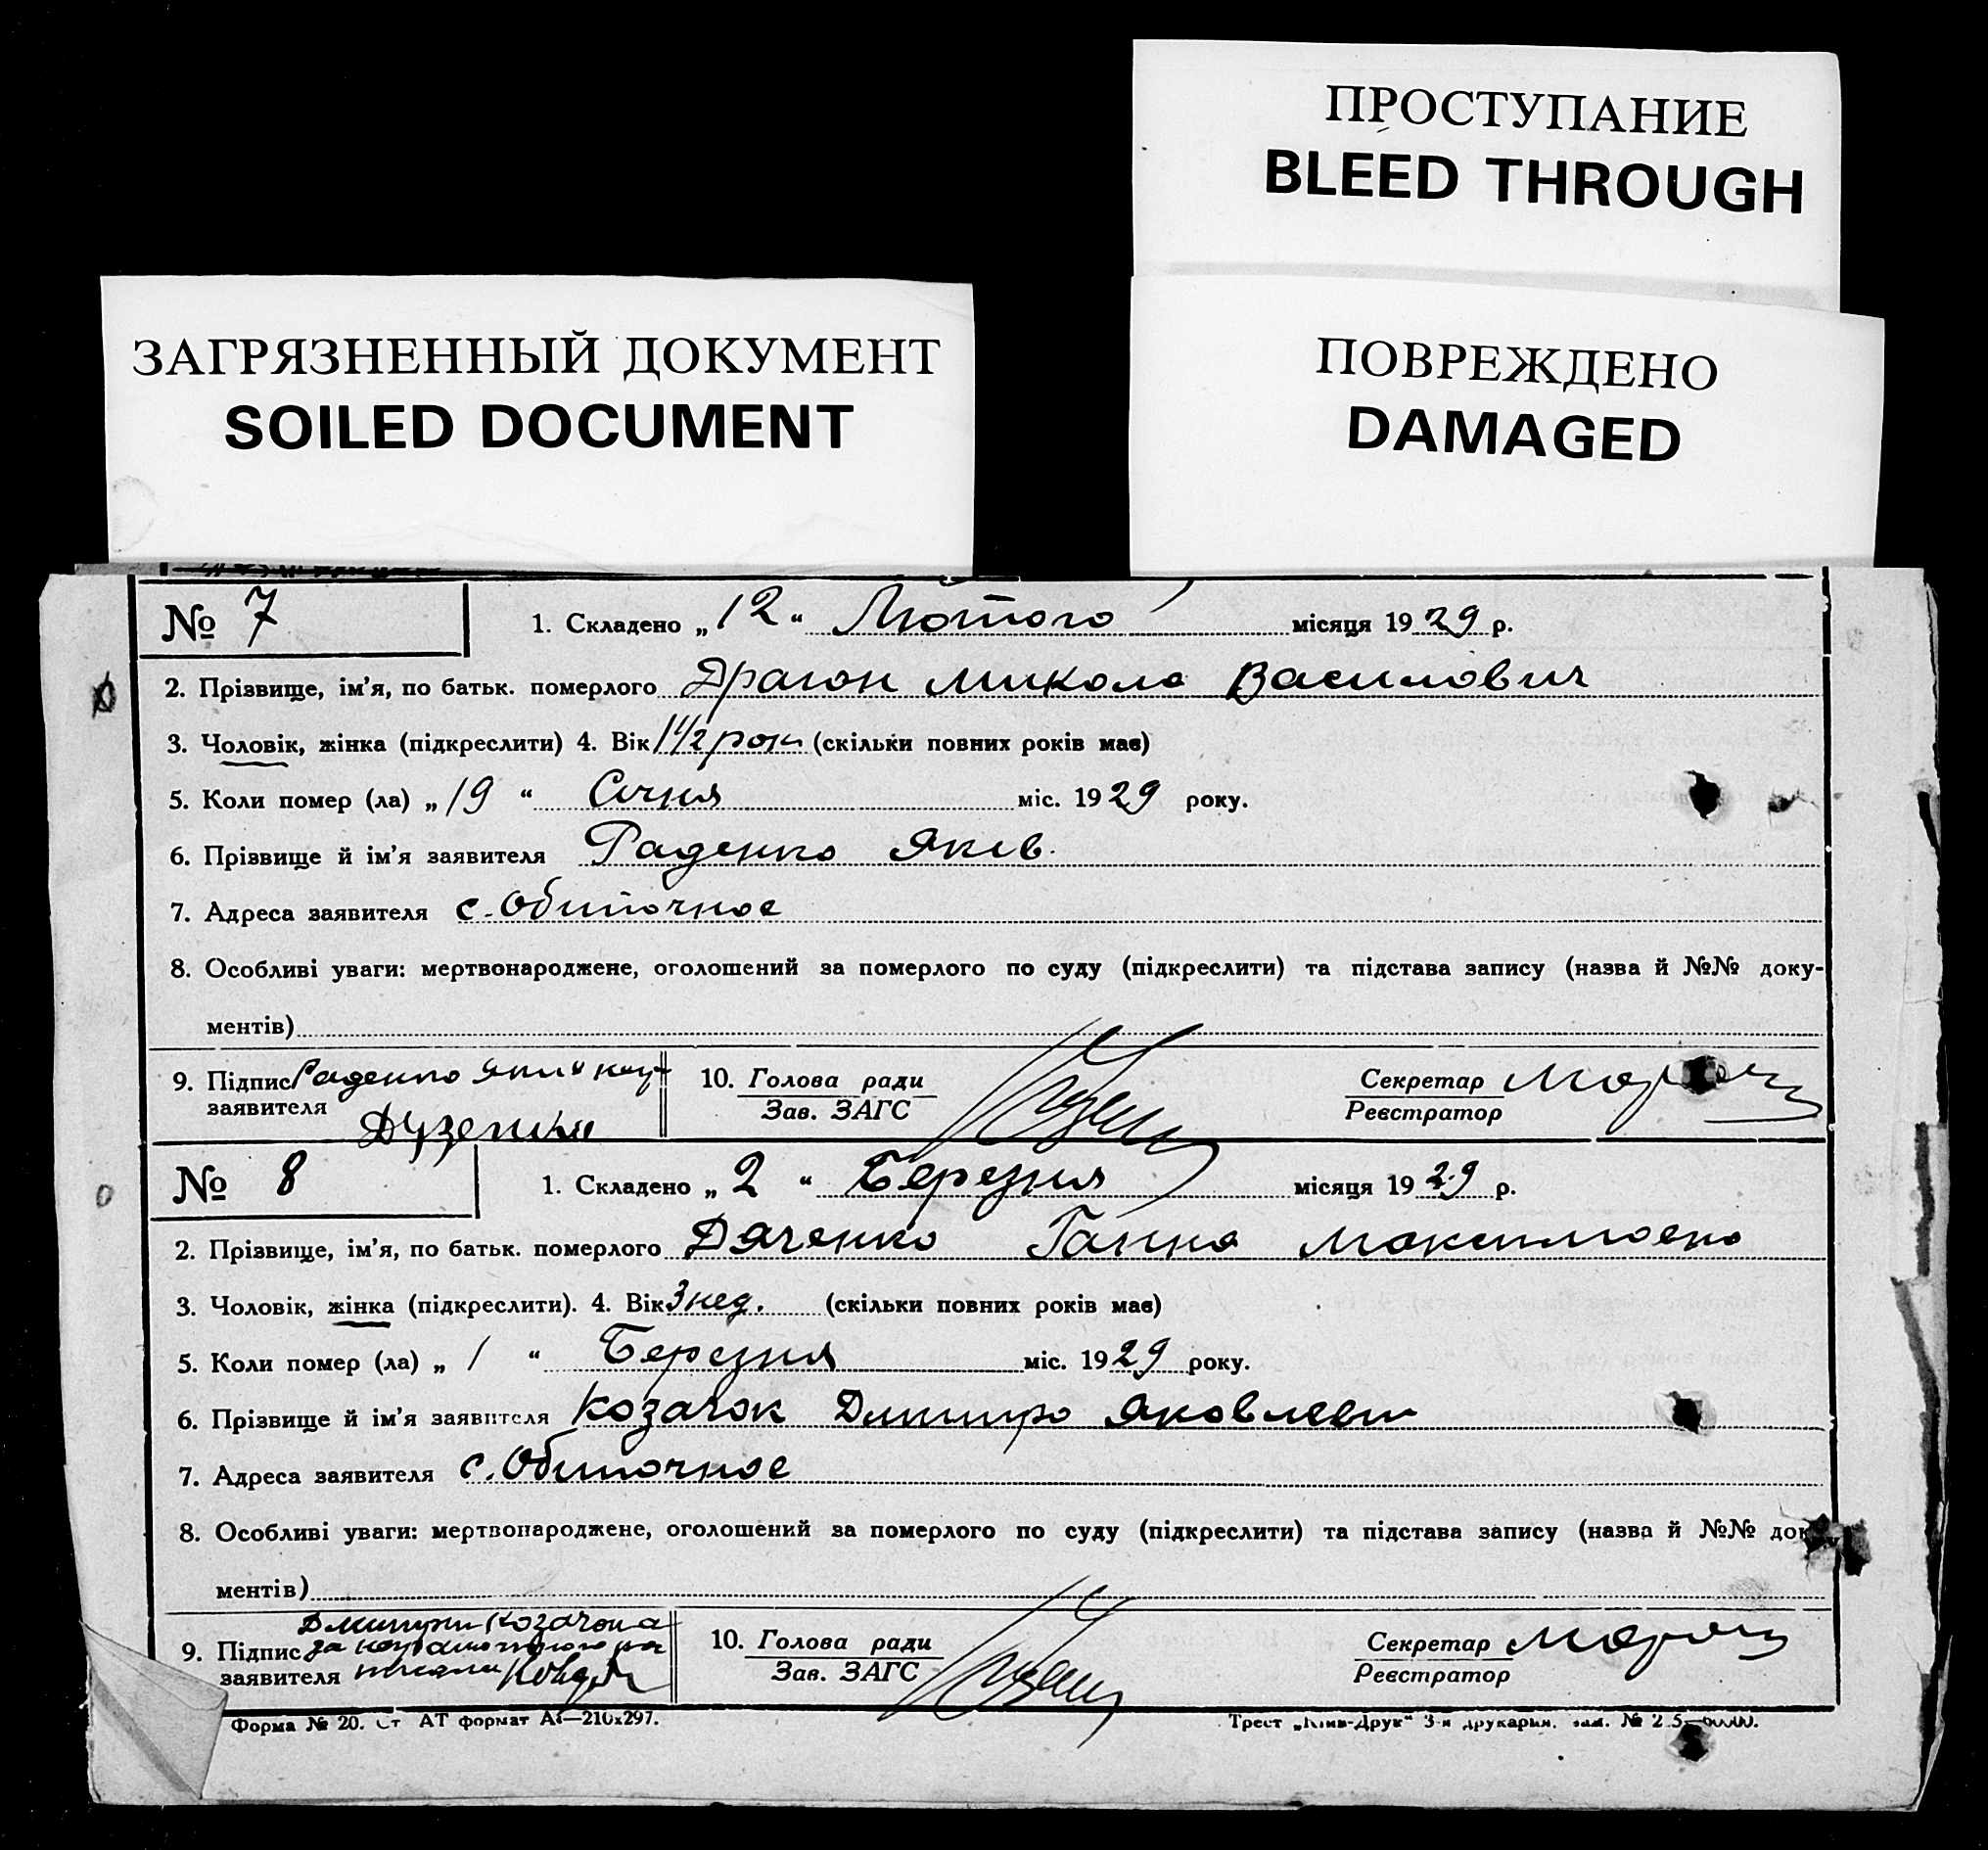 ПРОСТУПАНИЕ
BLEED THROUGH
ЗАГРЯЗНЕННЫЙ ДОКУМЕНТ
SOILED DOCUMENT
ПОВРЕЖДЕНО
DAMAGED
№ 7 1. Складено „ 12 “ Лютого місяця 1929 р.
2. Прізвище, ім’я, по батьк. померлого Драгон Микола Василович
3. Чоловік, жінка (підкреслити) 4. Вік 1 1/2 роки (скільки повних років має)
5. Коли помер (ла) „ 19 “ Січня міс. 1929 року.
6. Прізвище й ім’я заявителя Раденко Яків.
7. Адреса заявителя с. Обиточное
8. Особливі уваги: мертвонароджене, оголошений за померлого по суду (підкреслити) та підстава запису (назва й №№ доку-
ментів)
9. Підпис Раденко 10. Голова ради Секретар Мороз
заявителя Зав. ЗАГС Реєстратор
№ 8 1. Складено „ 2 “ Березня місяця 1929 р.
2. Прізвище, ім’я, по батьк. померлого Дяченко Ганна Максимовна
3. Чоловік, жінка (підкреслити). 4. Вік 3 нед. (скільки повних років має)
5. Коли помер (ла) „ 1 “ Березня міс. 1929 року.
6. Прізвище й ім’я заявителя Козачок Дмитро Яковлевич
7. Адреса заявителя с. Обиточное
8. Особливі уваги: мертвонароджене, оголошений за померлого по суду (підкреслити) та підстава запису (назва й №№ доку
ментів)
Дмитри Козачока
9. Підпис за 10. Голова ради Секретар Мороз
заявителя Зав. ЗАГС Реєстратор
Форма № 20. Ст АТ формат А4—210х297. Трест „Київ-Друк“ 3-я друкарня,